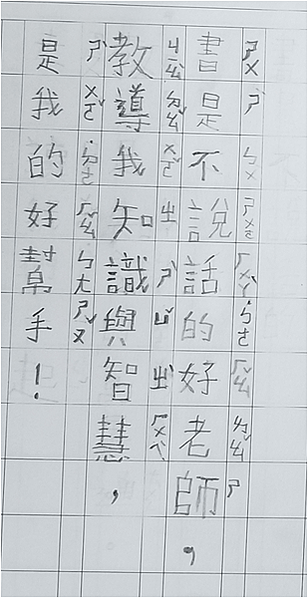 書是不說話的好老師，
ㄕㄨ ㄕˋ ㄅㄨˋ ㄕㄨㄛ ㄏㄨㄚˋ ㄉㄜ˙ ㄏㄠˇ ㄌㄠˇ ㄕ
教導我知識與智慧，
ㄐㄧㄠ ㄉㄠˇ ㄨㄛˇ ㄓ ㄕˋ ㄩˇ ㄓˋ ㄏㄨㄟˋ
是我的好幫手！
ㄕˋ ㄨㄛˇ ㄉㄜ˙ ㄏㄠˇ ㄅㄤ ㄕㄡˇ